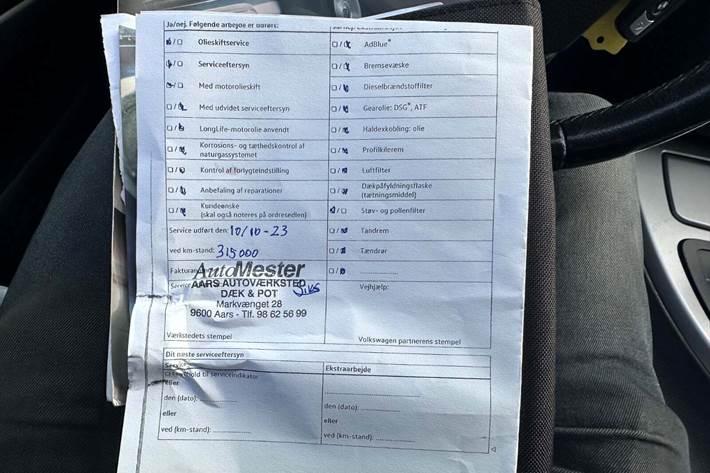 Ja/nej. Følgende arbejde er udført:
Olieskiftservice
Serviceeftersyn
Med motorolieskift
Med udvidet serviceeftersyn
LongLife-motorolie anvendt
Korrosions- og tæthedskontrol af
naturgassystemet
Kontrol af forlygteindstilling
Anbefaling af reparationer
Kundeønske
(skal også noteres på ordresedlen)
Service udført den: 10/10-23
ved km-stand: 315000
AutoMester
AARS AUTOVÆRKSTED
DÆK & POT
Markvænget 28
9600 Aars - Tlf. 98 62 56 99
Værkstedets stempel
AdBlue®
Bremsevæske
Dieselbrændstoffilter
Gearolie: DSG®, ATF
Haldexkobling: olie
Profilkilerem
Luftfilter
Dækpåfyldningsflaske
(tætningsmiddel)
Støv- og pollenfilter
Tandrem
Tændrør
Vejhjælp:
Volkswagen partnerens stempel
Dit næste serviceeftersyn
Service
eller
den (dato):
eller
ved (km-stand):
Ekstraarbejde
den (dato):
eller
ved (km-stand):